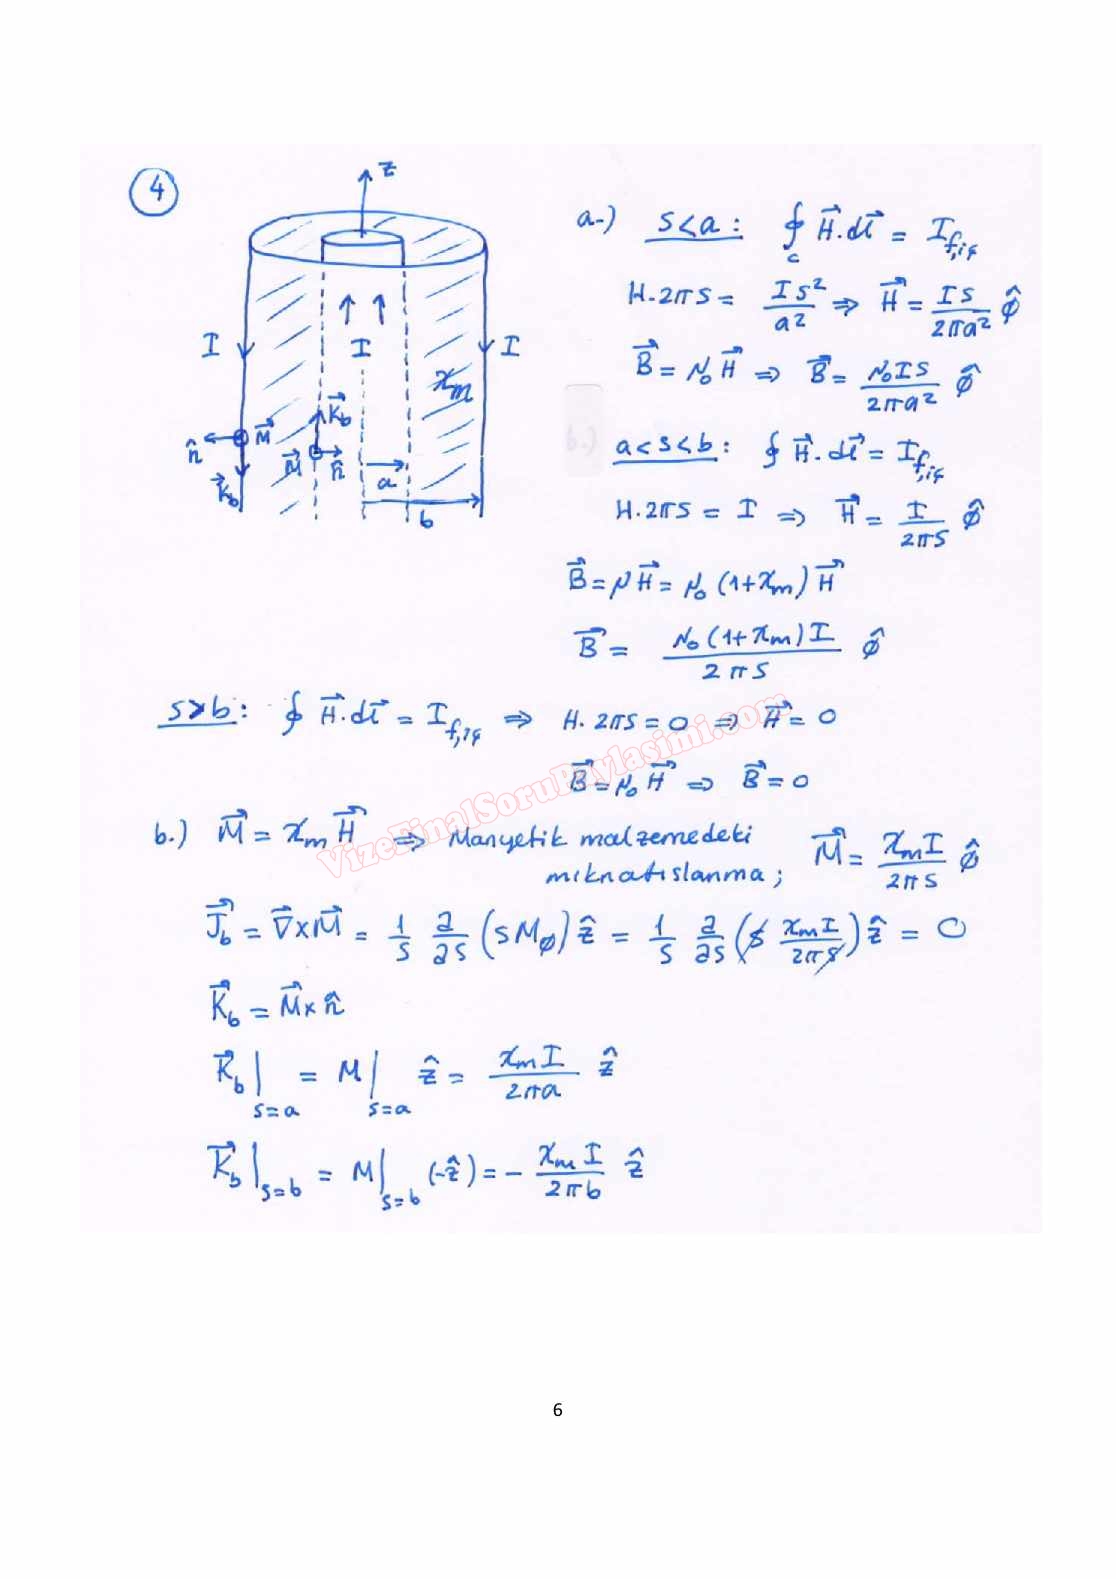 4
z
I
I
I
χm
K⃗b
n̂
M⃗
M⃗
n̂
K⃗b
a
b
a-) s<a : ∮c H⃗.dl⃗ = If,iç
H.2πs = Is²/a² ⇒ H⃗ = Is/2πa² φ̂
B⃗ = μ₀H⃗ ⇒ B⃗ = μ₀Is/2πa² φ̂
a<s<b : ∮ H⃗.dl⃗ = If,iç
H.2πs = I ⇒ H⃗ = I/2πs φ̂
B⃗ = μH⃗ = μ₀(1+χm)H⃗
B⃗ = μ₀(1+χm)I/2πs φ̂
s>b : ∮ H⃗.dl⃗ = If,iç ⇒ H.2πs = 0 ⇒ H⃗ = 0
B⃗ = μ₀H⃗ ⇒ B⃗ = 0
VizeFinalSoruPaylasimi.com
b.) M⃗ = χmH⃗ ⇒ Manyetik malzemedeki
mıknatıslanma; M⃗ = χmI/2πs φ̂
J⃗b = ∇⃗×M⃗ = 1/s ∂/∂s (sMφ)ẑ = 1/s ∂/∂s (s χmI/2πs)ẑ = 0
K⃗b = M⃗×n̂
K⃗b|s=a = M|s=a ẑ = χmI/2πa ẑ
K⃗b|s=b = M|s=b (-ẑ) = - χmI/2πb ẑ
6